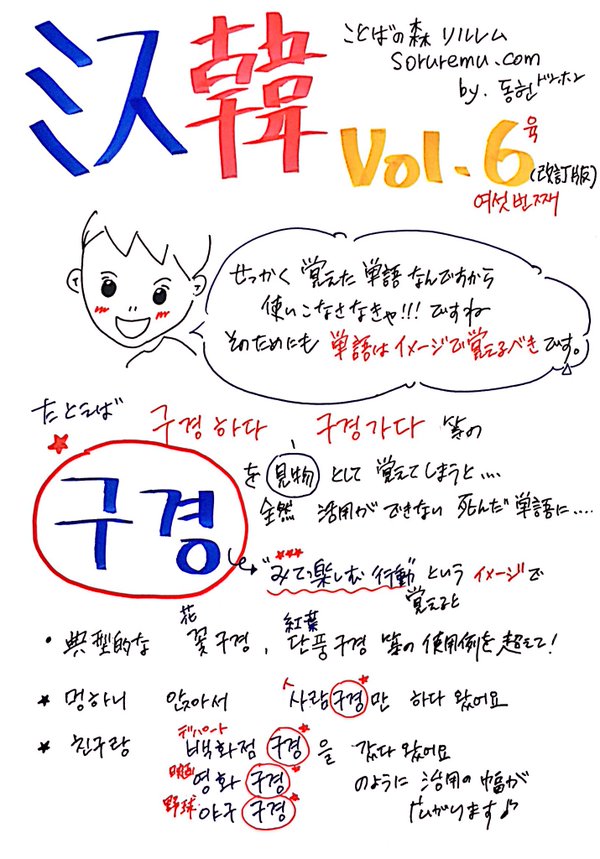 ミス韓
ことばの森 ソルレム
soruremu.com
by. 동헌 ドンホン
Vol. 6 육
(改訂版)
여섯 번째
せっかく 覚えた 単語 なんですから
使いこなさなきゃ!!! ですね
そのためにも 単語はイメージで覚えるべきです。
たとえば 구경하다、구경가다 等の
구경
を 見物 として 覚えてしまうと....
全然 活用ができない 死んだ単語に....
"みて楽しむ 行動" という イメージで
覚えると
• 典型的な 꽃구경, 단풍구경 等の 使用例を超えて!
花 紅葉
★ 멍하니 앉아서 사람구경만 하다 왔어요
人
★ 친구랑 백화점 구경을 갔다 왔어요
デパート
映画 영화 구경 のように 活用の幅が
野球 야구 구경 広がります♪